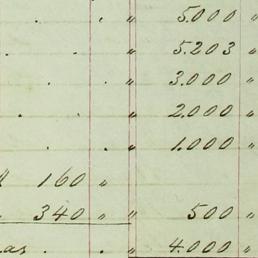 . " 5.000 "
. . " 5.203 "
. . " 3.000 "
. . " 2.000 "
. . " 1.000 "
160 "
340 " " 500 "
as . . " 4.000 "